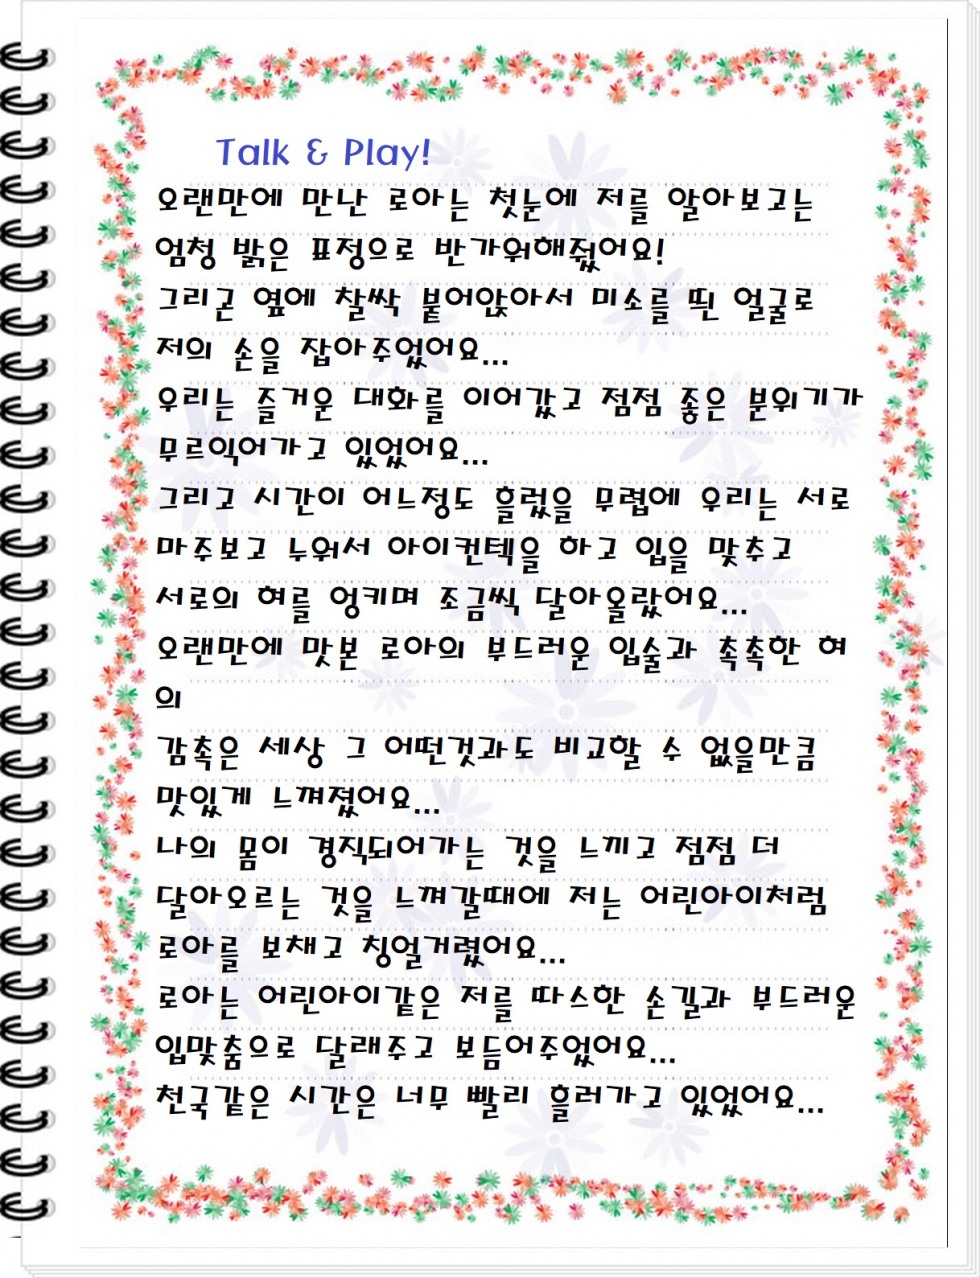 Talk & Play!
오랜만에 만난 로아는 첫눈에 저를 알아보고는
엄청 밝은 표정으로 반가워해줬어요!
그리곤 옆에 찰싹 붙어앉아서 미소를 띈 얼굴로
저의 손을 잡아주었어요...
우리는 즐거운 대화를 이어갔고 점점 좋은 분위기가
무르익어가고 있었어요...
그리고 시간이 어느정도 흘렀을 무렵에 우리는 서로
마주보고 누워서 아이컨텍을 하고 입을 맞추고
서로의 혀를 엉키며 조금씩 달아올랐어요...
오랜만에 맛본 로아의 부드러운 입술과 촉촉한 혀
의
감촉은 세상 그 어떤것과도 비교할 수 없을만큼
맛있게 느껴졌어요...
나의 몸이 경직되어가는 것을 느끼고 점점 더
달아오르는 것을 느껴갈때에 저는 어린아이처럼
로아를 보채고 칭얼거렸어요...
로아는 어린아이같은 저를 따스한 손길과 부드러운
입맞춤으로 달래주고 보듬어주었어요...
천국같은 시간은 너무 빨리 흘러가고 있었어요...